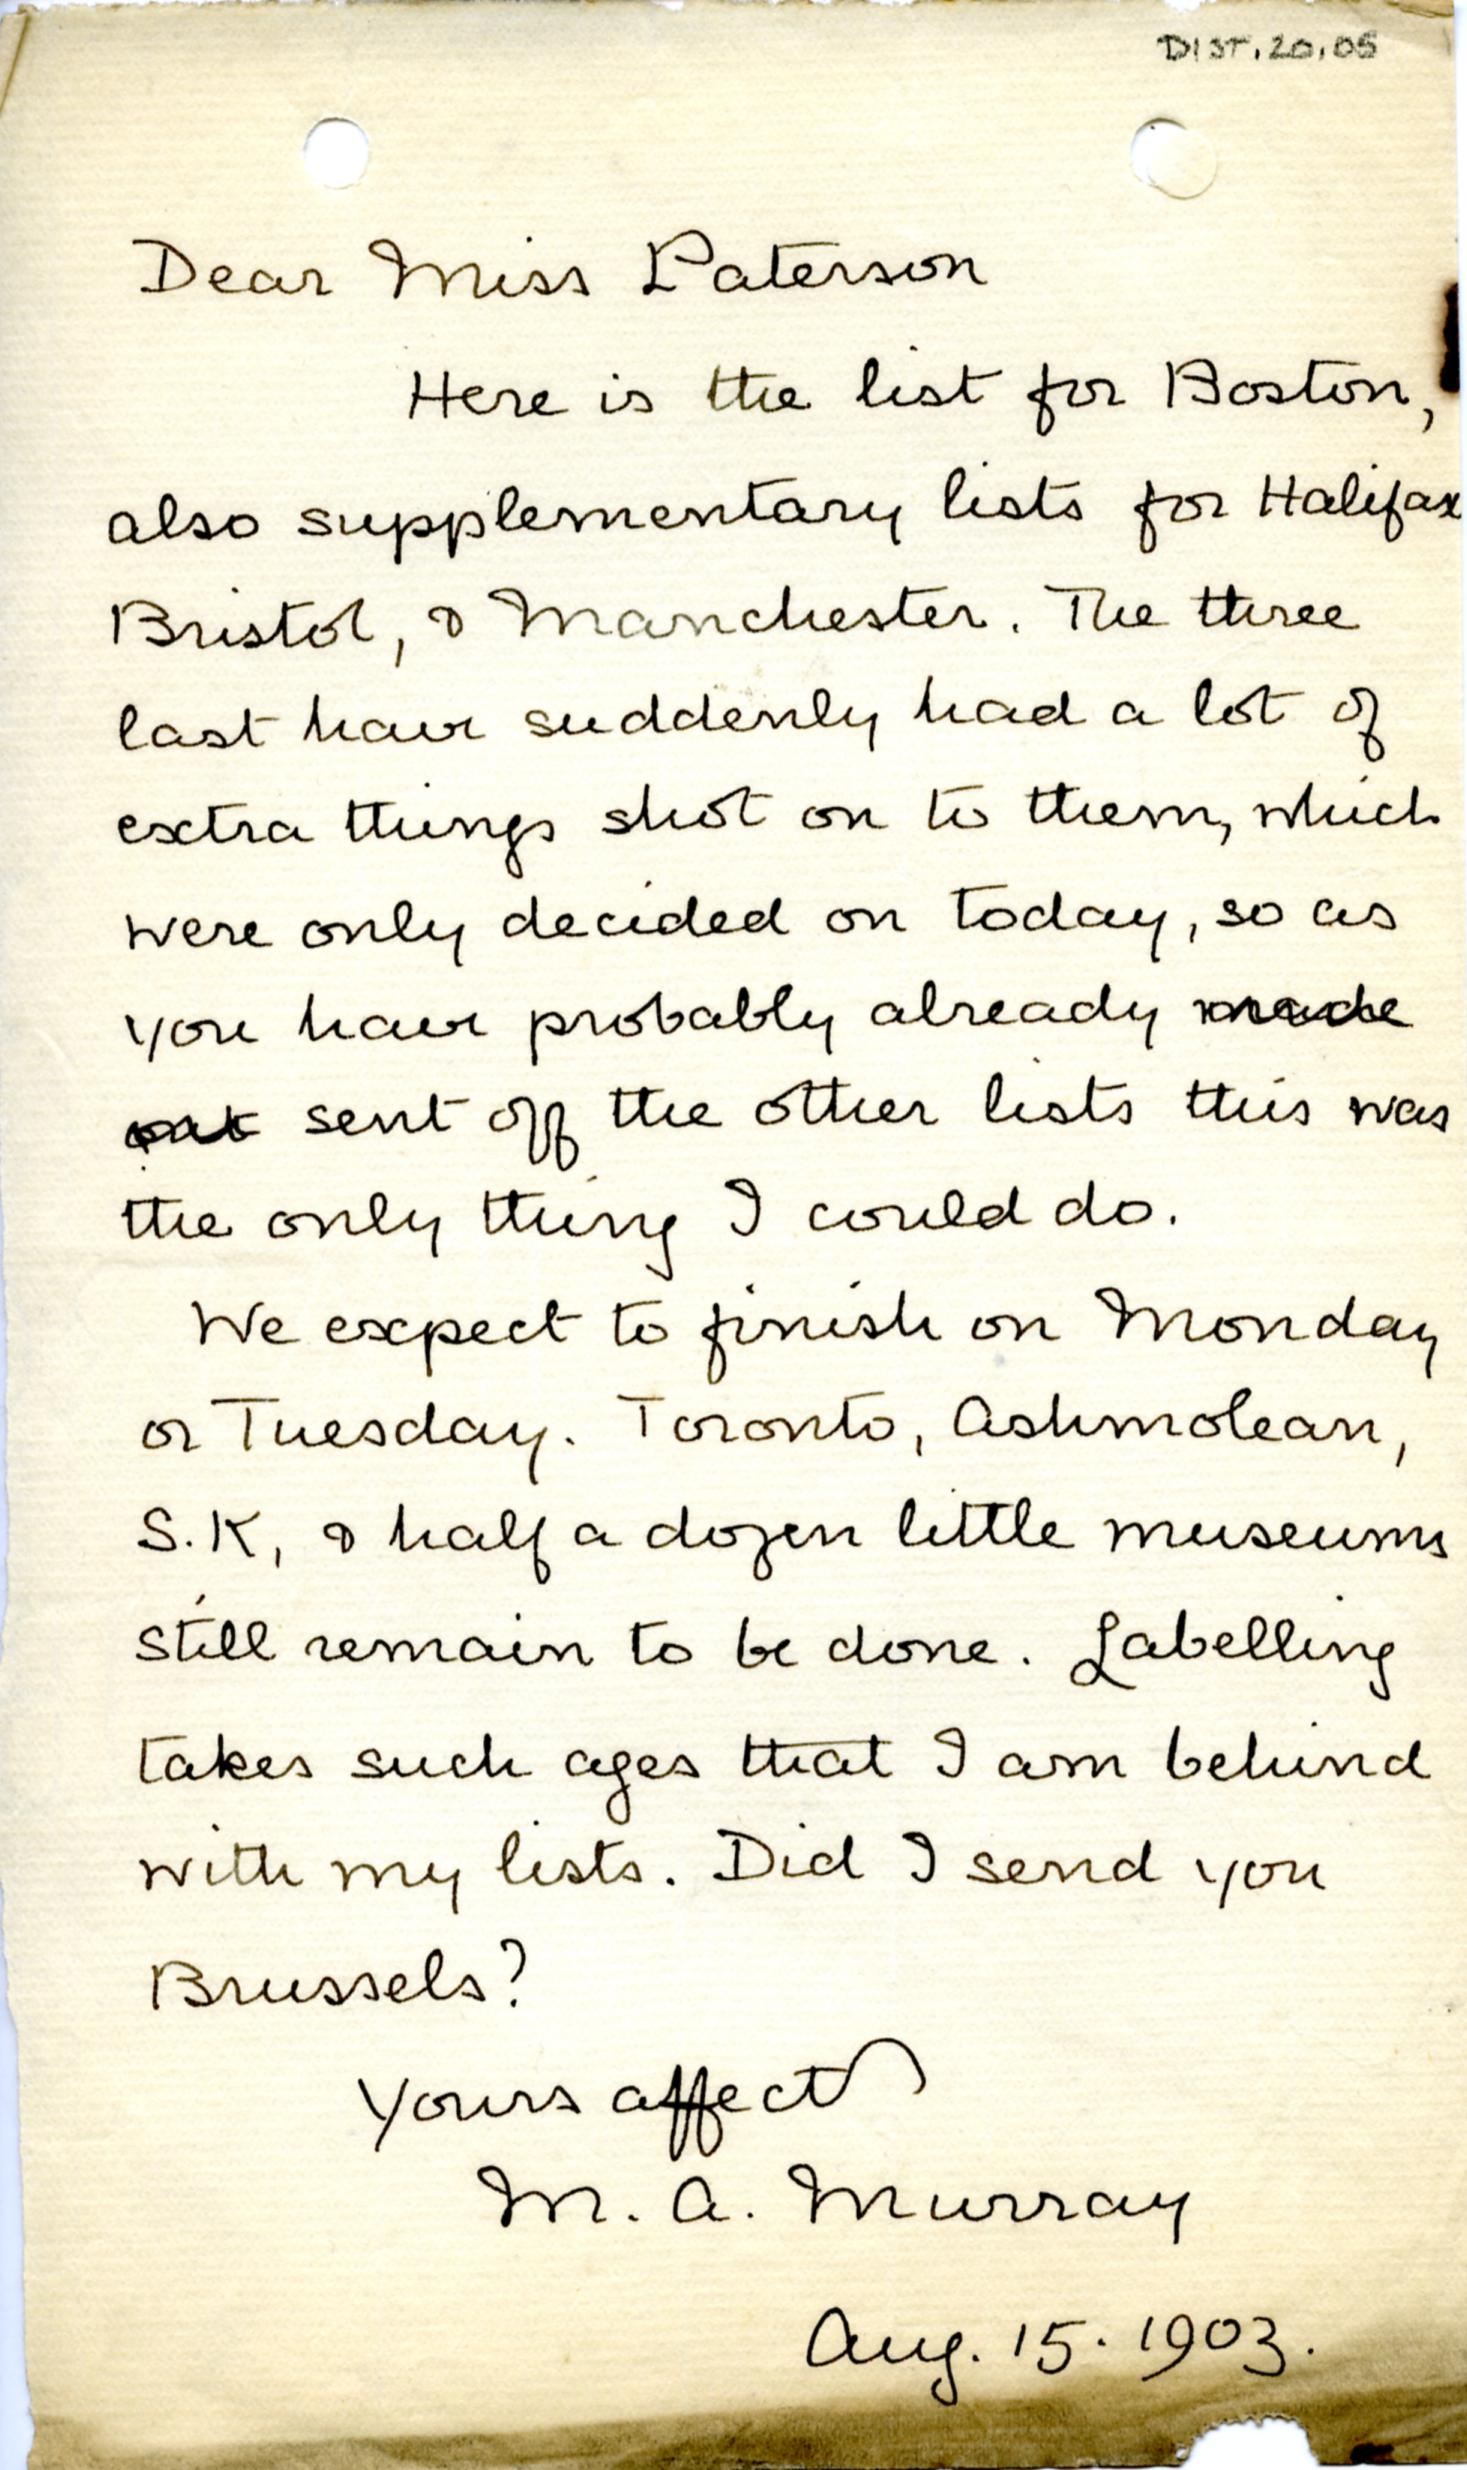 DIST.20.05
Dear Miss Paterson
Here is the list for Boston,
also supplementary lists for Halifax
Bristol, & Manchester. The three
last have suddenly had a lot of
extra things shot on to them, which
were only decided on today, so as
you have probably already made
out sent off the other lists this was
the only thing I could do.
We expect to finish on Monday
or Tuesday. Toronto, Ashmolean,
S.K, & half a dozen little museums
still remain to be done. Labelling
takes such ages that I am behind
with my lists. Did I send you
Brussels?
Yours affect
M. A. Murray
Aug. 15. 1903.